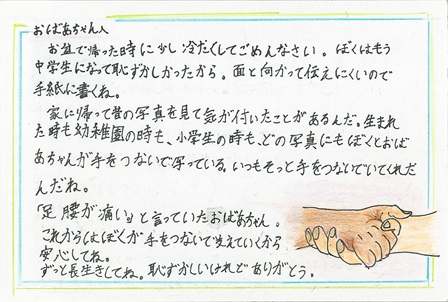 おばあちゃんへ
お盆で帰った時に少し冷たくしてごめんなさい。ぼくはもう
中学生になって恥ずかしかったから。面と向かって伝えにくいので
手紙に書くね。
家に帰って昔の写真を見て気が付いたことがあるんだ。生まれ
た時も幼稚園の時も、小学生の時も、どの写真にもぼくとおば
あちゃんが手をつないで写っている。いつもそっと手をつないでいてくれた
んだね。
「足腰が痛い」と言っていたおばあちゃん。
これからはぼくが手をつないで支えていくから
安心してね。
ずっと長生きしてね。恥ずかしいけれどありがとう。